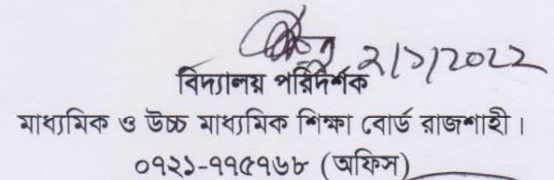 ২/১/2022
বিদ্যালয় পরিদর্শক
মাধ্যমিক ও উচ্চ মাধ্যমিক শিক্ষা বোর্ড রাজশাহী।
০৭২১-৭৭৫৭৬৮ (অফিস)